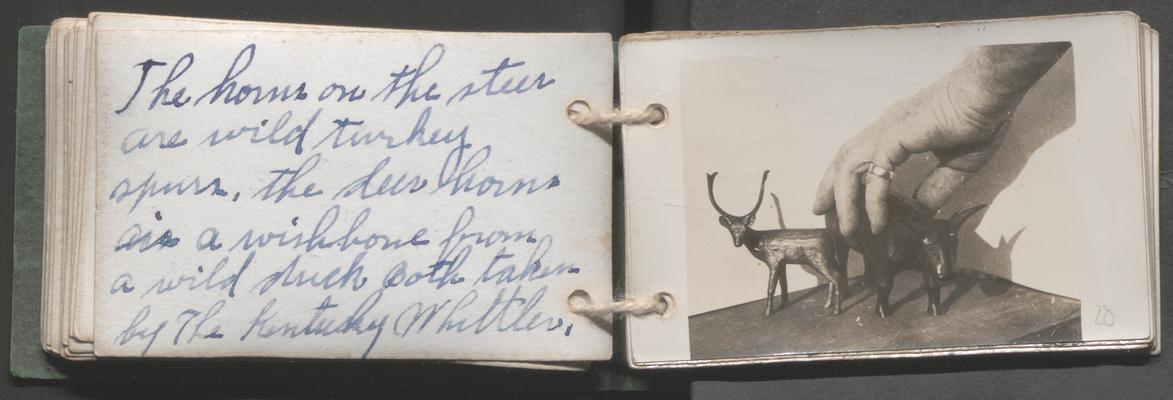 The horns on the steer
are wild turkey
spurs, the deer horns
is a wishbone from
a wild duck Both taken
by The Kentucky Whittler.
28